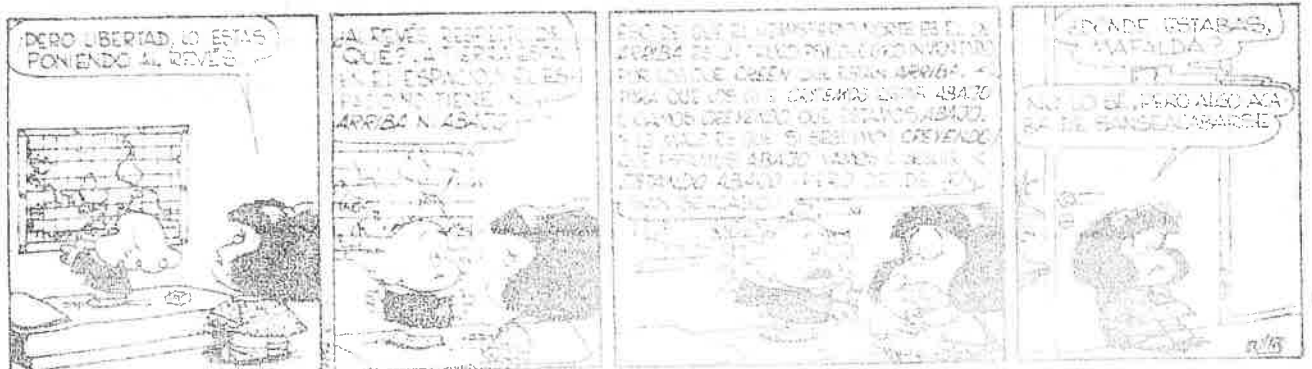 PERO LIBERTAD, LO ESTAS
PONIENDO AL REVÉS
¿AL REVÉS RESPECTO DE
QUÉ? LA TIERRA ESTÁ
EN EL ESPACIO Y EL ES-
PACIO NO TIENE NI
ARRIBA NI ABAJO
ESO DE QUE EL HEMISFERIO NORTE ES EL DE
ARRIBA ES UN INVENTADO
POR LOS QUE CREEN QUE ESTÁN ARRIBA,
PARA QUE LOS QUE CREEMOS ESTAR ABAJO
SIGAMOS CREYENDO QUE ESTAMOS ABAJO.
Y LO MALO ES QUE SI SEGUIMOS CREYENDO
QUE ESTAMOS ABAJO VAMOS A SEGUIR
ESTANDO ABAJO ¡PERO DESDE HOY,
¿DÓNDE ESTABAS,
MAFALDA?
NO LO SÉ, PERO ALGO ACA
BA DE SANSEACABARSE